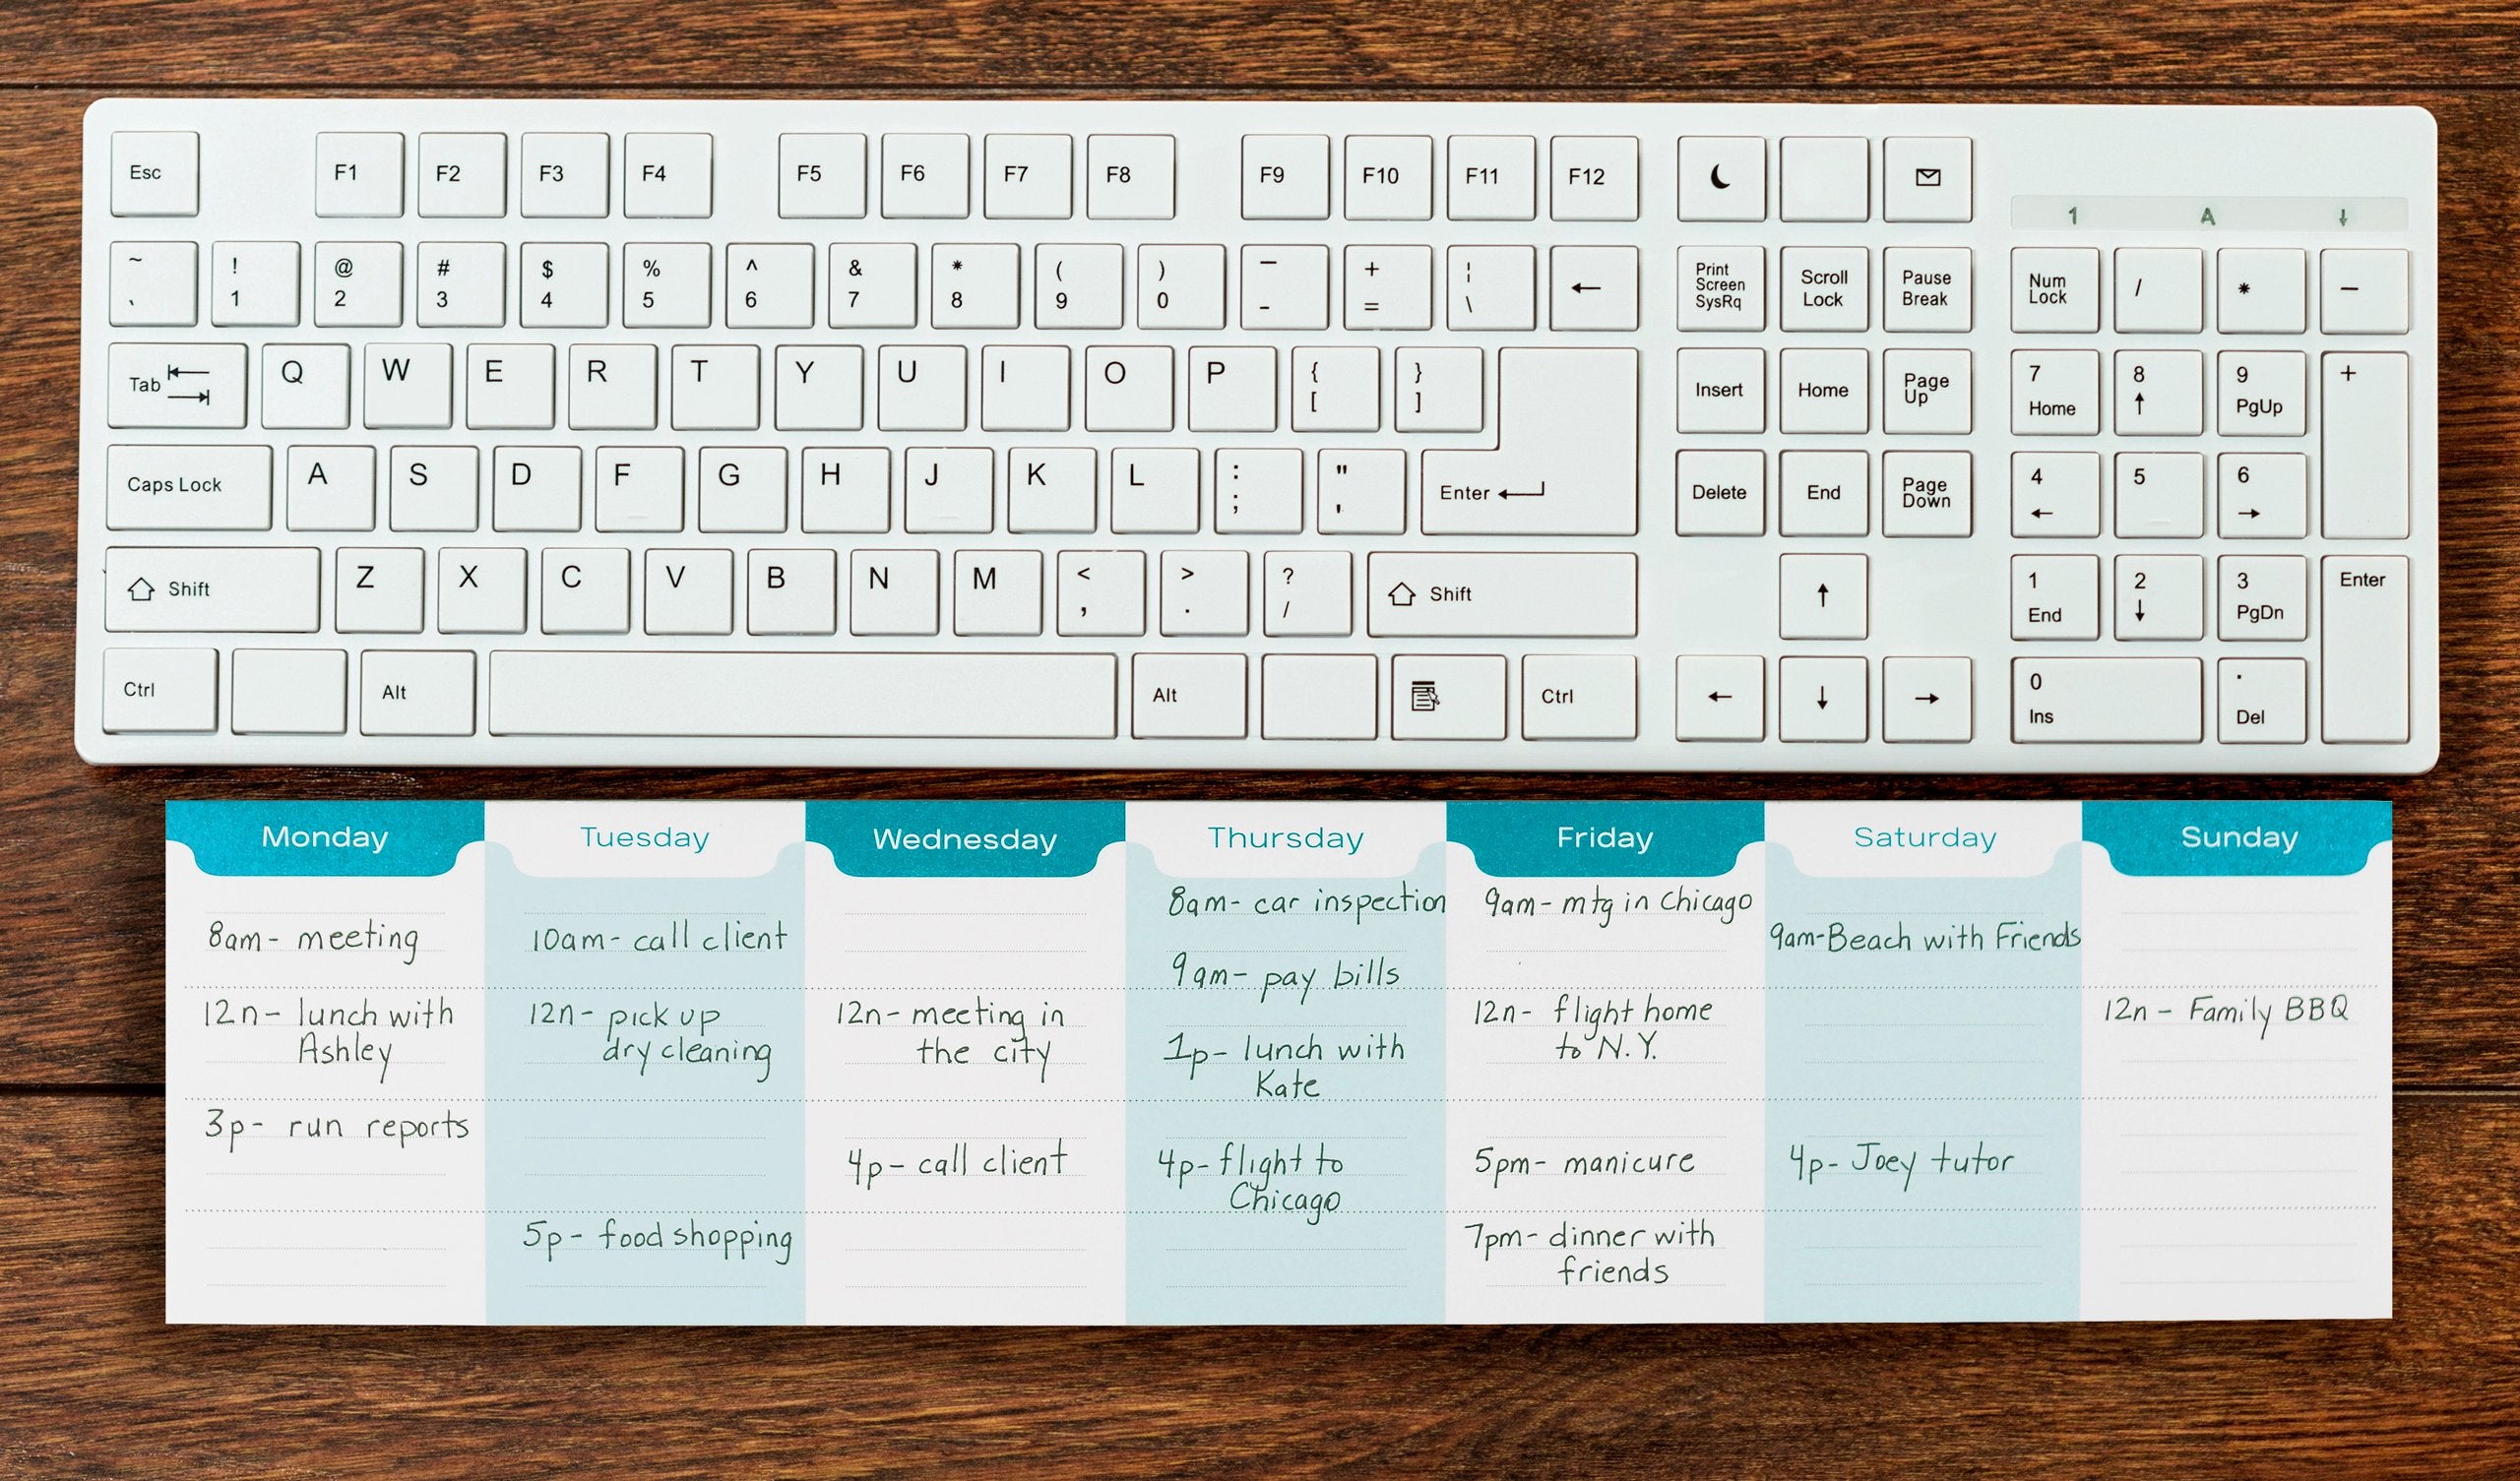 Esc F1 F2 F3 F4 F5 F6 F7 F8 F9 F10 F11 F12
1 A ↓
~ ! @ # $ % ^ & * ( ) — + ¦ ←
` 1 2 3 4 5 6 7 8 9 0 - = \
Print Screen SysRq
Scroll Lock
Pause Break
Num Lock / * −
Tab Q W E R T Y U I O P { [ } ]
Insert Home Page Up
7 Home 8 ↑ 9 PgUp +
Caps Lock A S D F G H J K L : ; " ' Enter
Delete End Page Down
4 ← 5 6 →
Shift Z X C V B N M < , > . ? / Shift
↑
1 End 2 ↓ 3 PgDn Enter
Ctrl Alt Alt Ctrl
← ↓ →
0 Ins . Del
Monday
8am- meeting
12n- lunch with
Ashley
3p- run reports
Tuesday
10am- call client
12n- pick up
dry cleaning
5p- food shopping
Wednesday
12n- meeting in
the city
4p- call client
Thursday
8am- car inspection
9am- pay bills
1p- lunch with
Kate
4p- flight to
Chicago
Friday
9am- mtg in Chicago
12n- flight home
to N.Y.
5pm- manicure
7pm- dinner with
friends
Saturday
9am-Beach with Friends
4p- Joey tutor
Sunday
12n- Family BBQ